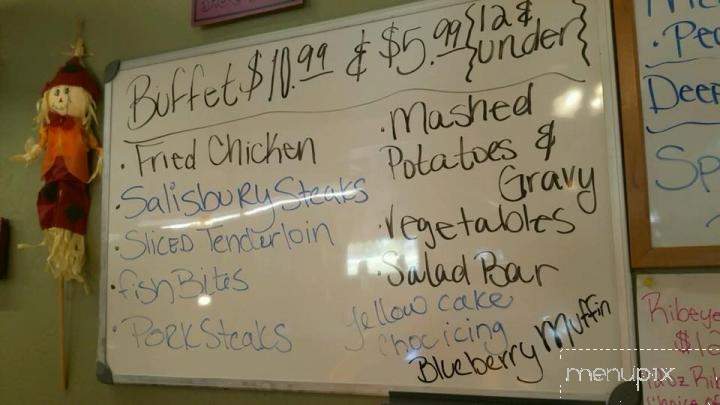 Buffet $10.99 & $5.99 {12 & under}
· Fried Chicken
· Salisbury Steaks
· Sliced Tenderloin
· fish Bites
· Pork Steaks
· Mashed
Potatoes &
Gravy
· Vegetables
· Salad Bar
Yellow cake
Choc icing
Blueberry Muffin
· Pe
Deep
Sp
Ribeye
$1
menupix